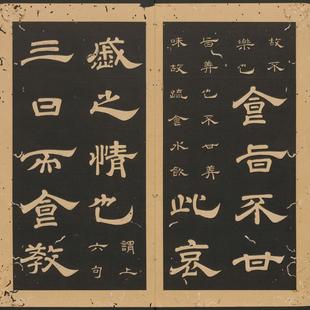 故不
樂也
食旨不甘
旨美也不甘美
味故疏食水飲
此哀
慼之情也
謂上
六句
三日而食教